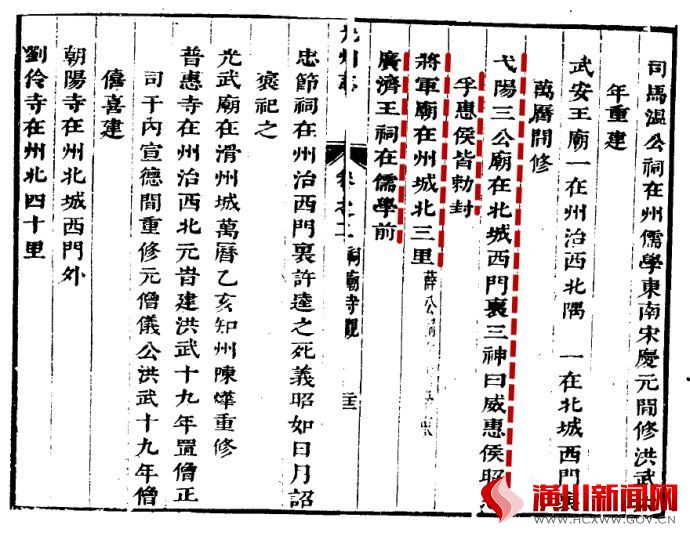 司馬溫公祠在州儒學東南宋慶元間修洪武
年重建
武安王廟一在州治西北隅　一在北城西門裏
萬曆間修
弋陽三公廟在北城西門裏三神曰威惠侯昭
孚惠侯皆勅封
將軍廟在州城北三里
廣濟王祠在儒學前
光州志
卷之二
祠廟寺觀
忠節祠在州治西門裏許逵之死義昭如日月詔
褒祀之
光武廟在滑州城萬曆乙亥知州陳燁重修
普惠寺在州治西北元昔建洪武十九年置僧正
司于內宣德間重修元僧儀公洪武十九年僧
僖喜建
朝陽寺在州北城西門外
劉伶寺在州北四十里
潢川新闻网
WWW.HCXWW.GOV.CN